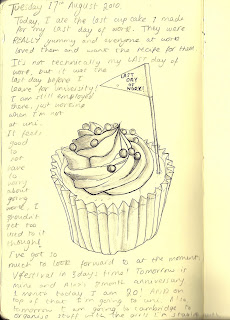 Tuesday 17th August 2010.
Today, I ate the last cupcake I made
for my last day of work. They were
REALLY yummy and everyone at work
loved them and wants the recipe for them
It's not technically my LAST day of
work, but it was the
last day before I
leave for university!
I am still employed
there, just working
when I'm not
at uni.
It feels
good
to
not
have
to
worry
about
going
work, I
shouldn't
get too
used to it
though!
I've got so
much to look forward to at the moment.
V festival in 3 days time! Tomorrow is
mine and 9 month anniversary
I wonder today I am 20! And on
top of that I'm going to uni. Also
tomorrow I am going to Cambridge to
organise stuff with the girls I'm
LAST
DAY OF
WORK!